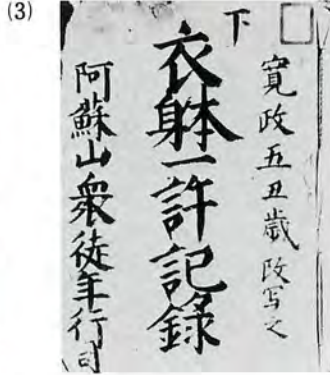 (3)
寛政五丑歳改写之
下
衣躰一許記録
阿蘇山衆徒年行司